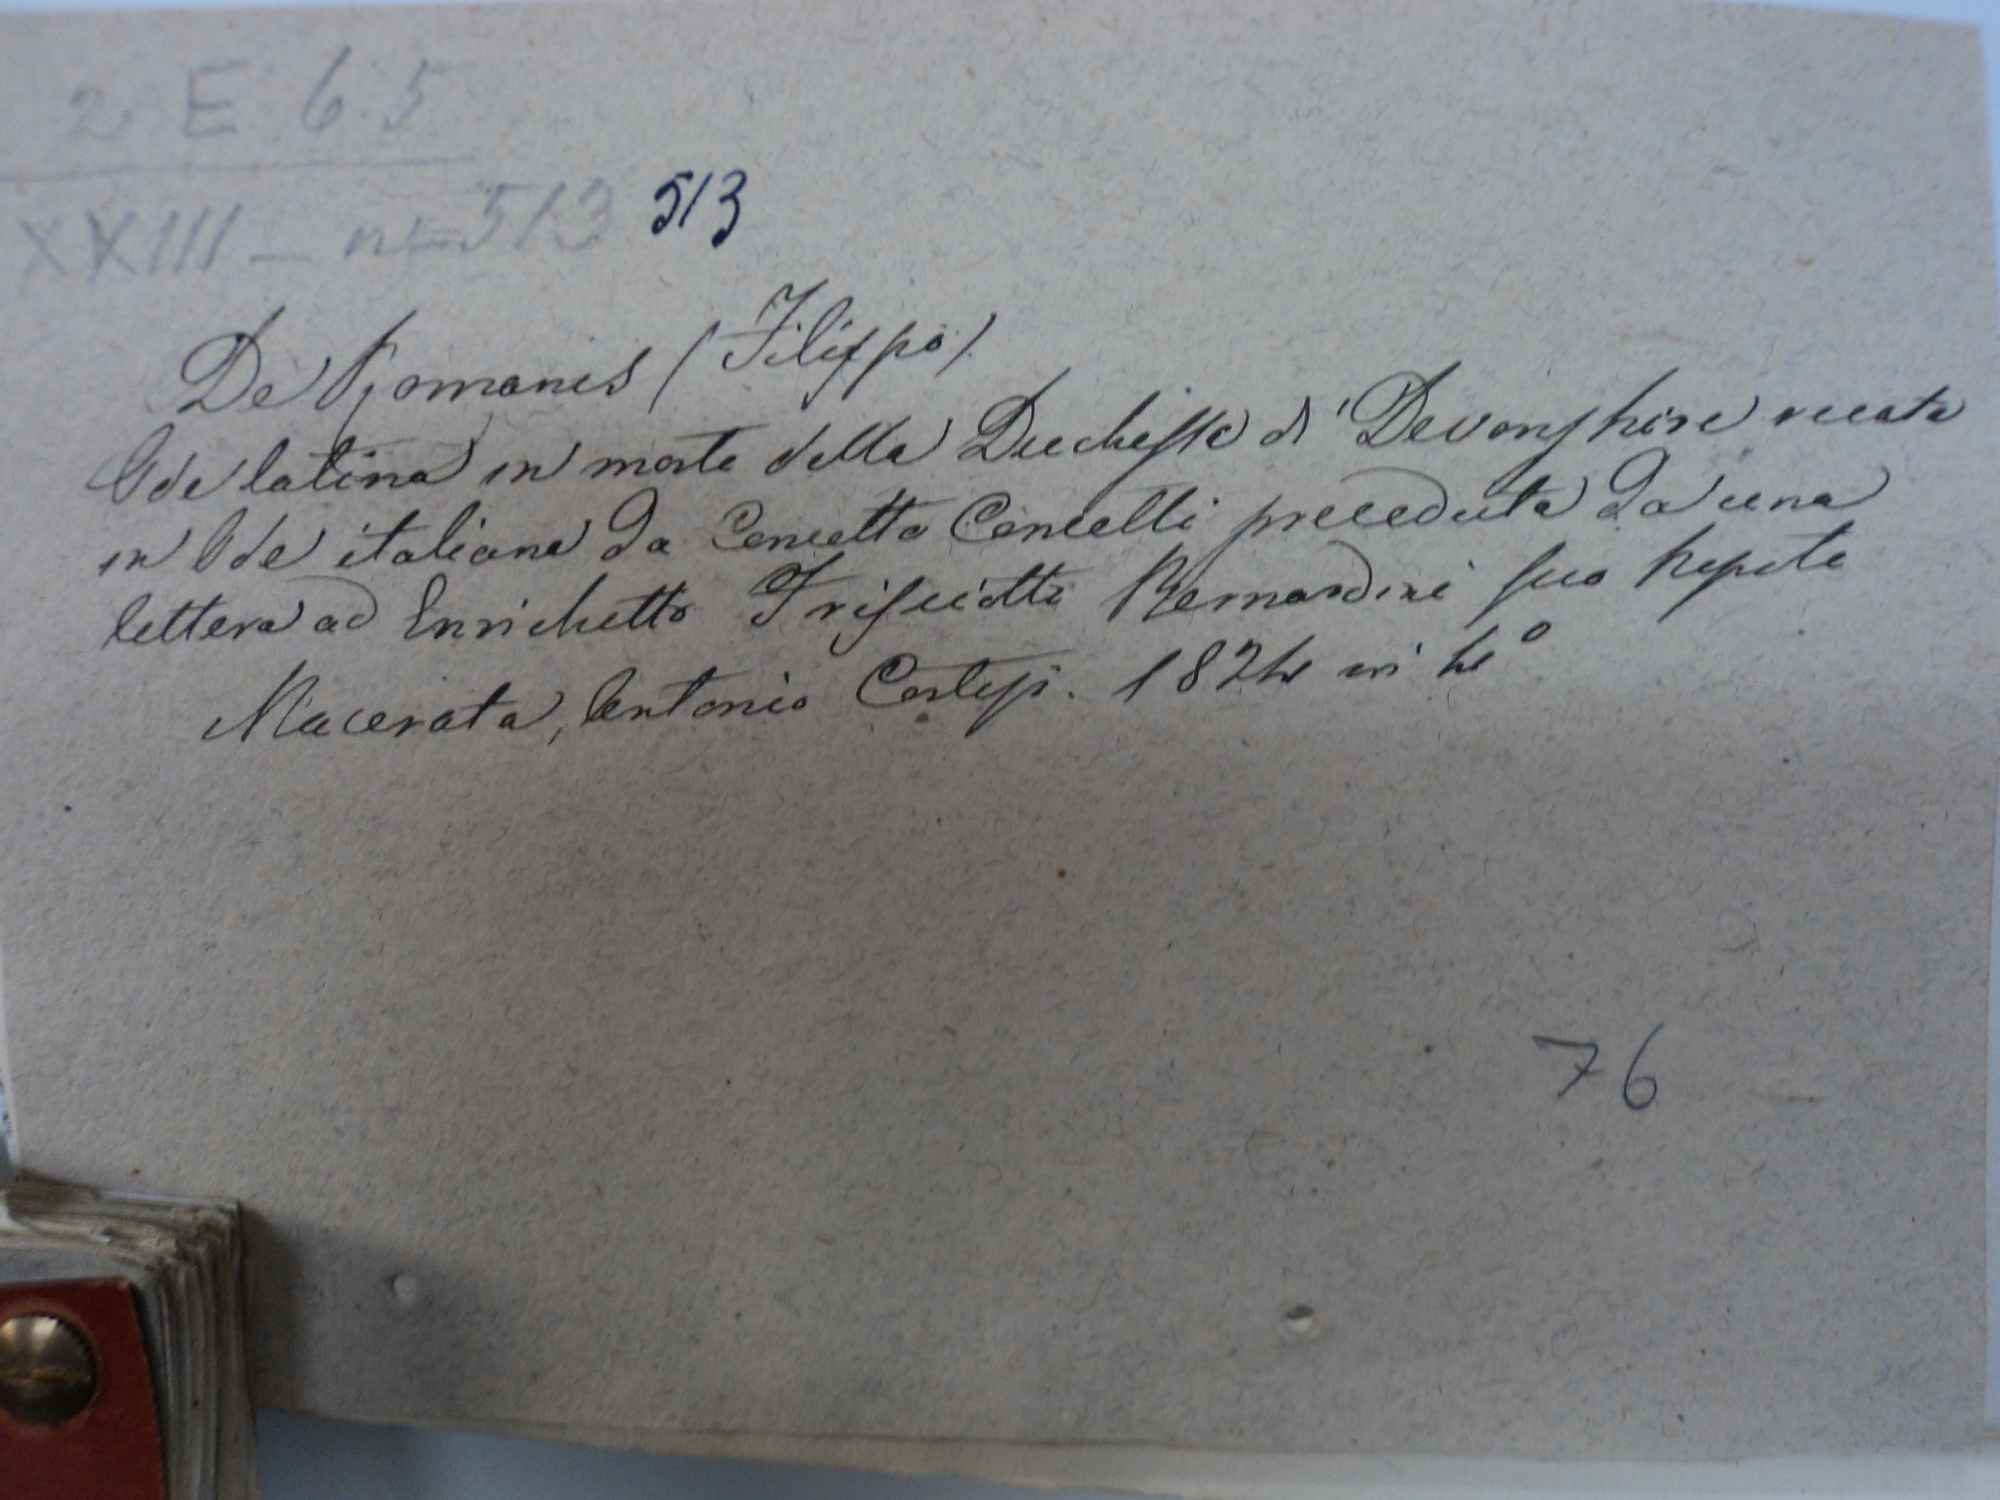 2 E 65
XXIII - n° 513 513
De Romanis (Filippo)
Ode latina in morte della Duchessa di Devonshire recata
in Ode italiana da Concetto Concelli preceduta da una
lettera ad Enrichetto Frisciotti Bernardini suo nepote
Macerata, Antonio Cortesi. 1824 in 4°
76